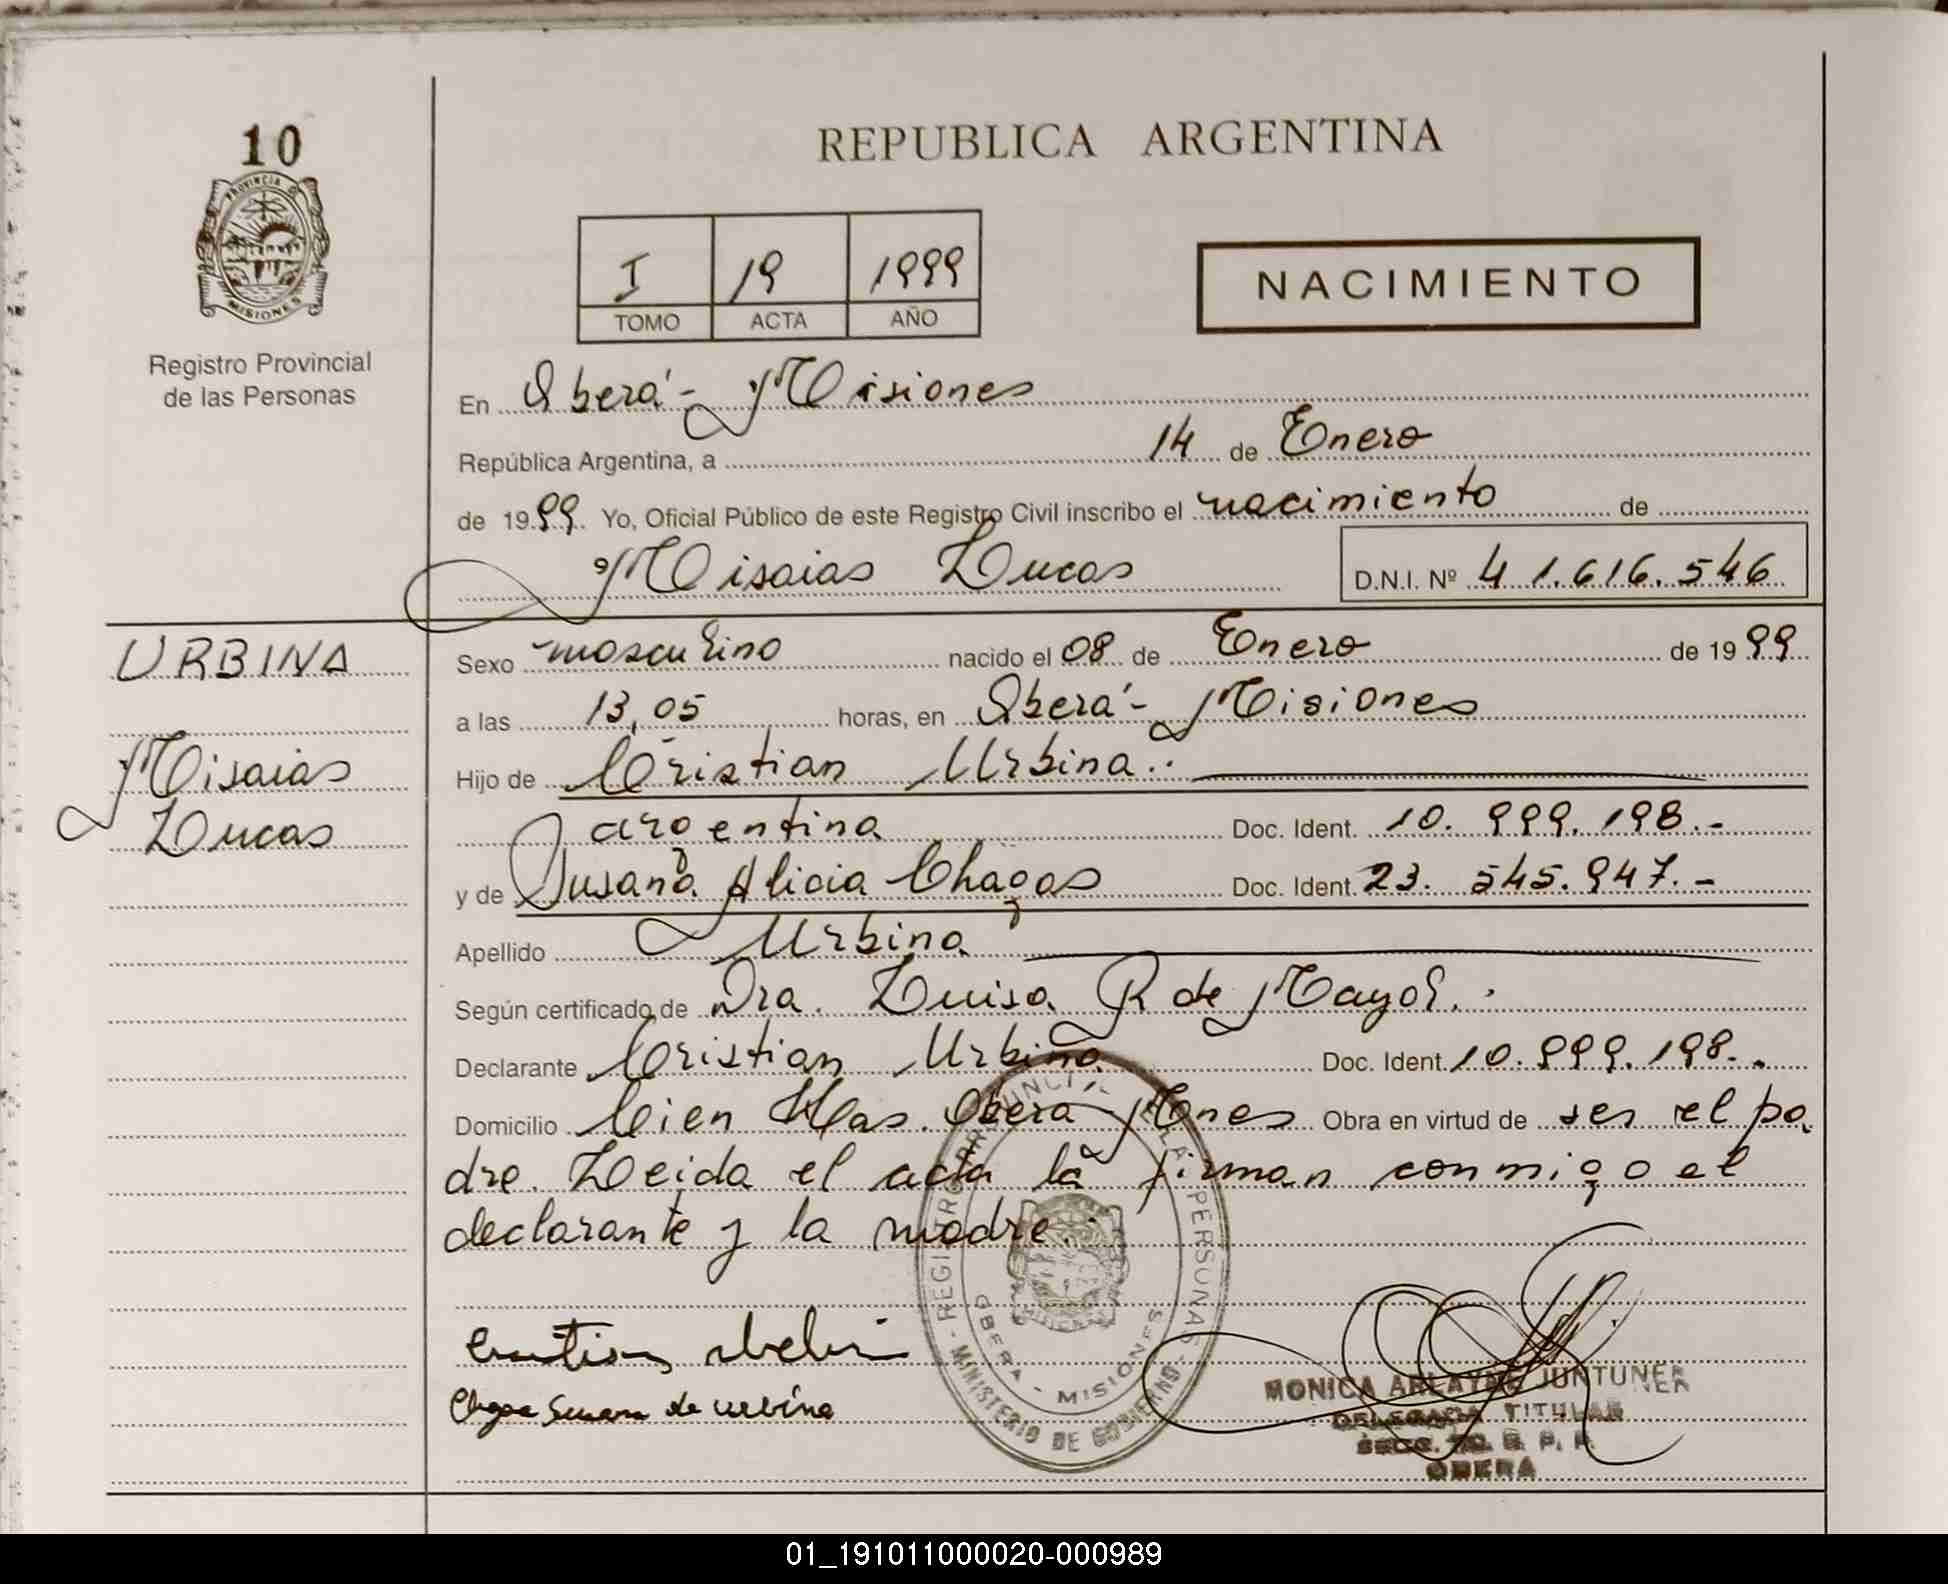 10
PROVINCIA D
MISIONES
Registro Provincial
de las Personas
REPUBLICA ARGENTINA
I 19 1999
TOMO ACTA AÑO
NACIMIENTO
En Oberá - Misiones
República Argentina, a 14 de Enero
de 1999 Yo, Oficial Público de este Registro Civil inscribo el nacimiento de
Misaias Lucas D.N.I. Nº 41.616.546
URBINA
Misaias
Lucas
Sexo masculino nacido el 08 de Enero de 1999
a las 13,05 horas, en Oberá - Misiones
Hijo de Cristian Urbina.
argentina Doc. Ident. 10.999.198.-
y de Susana Alicia Chagas Doc. Ident. 23.545.947.-
Apellido Urbina
Según certificado de Dra. Luisa R de Mayol.
Declarante Cristian Urbina Doc. Ident. 10.999.198.-
Domicilio Cien Has. Oberá Mnes Obra en virtud de ser el pa
dre. Leida el acta la firman conmigo el
declarante y la madre.
REGISTRO PROVINCIAL PERSONAS
OBERA - MISIONES
- MINISTERIO DE GOBIERNO -
Susana de urbina
MONICA ARLAYNE JUNTUNEN
DELEGADA TITULAR
SECC. R. P. P.
OBERA
01_191011000020-000989